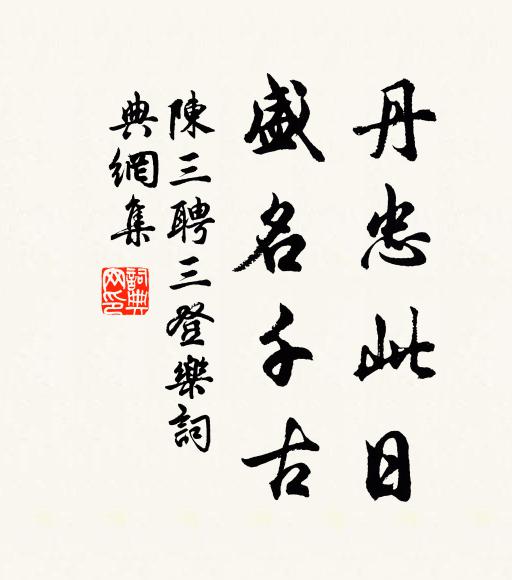 丹忠此日
盛名千古
陳三聘三登樂詞
典網集
詞典網印